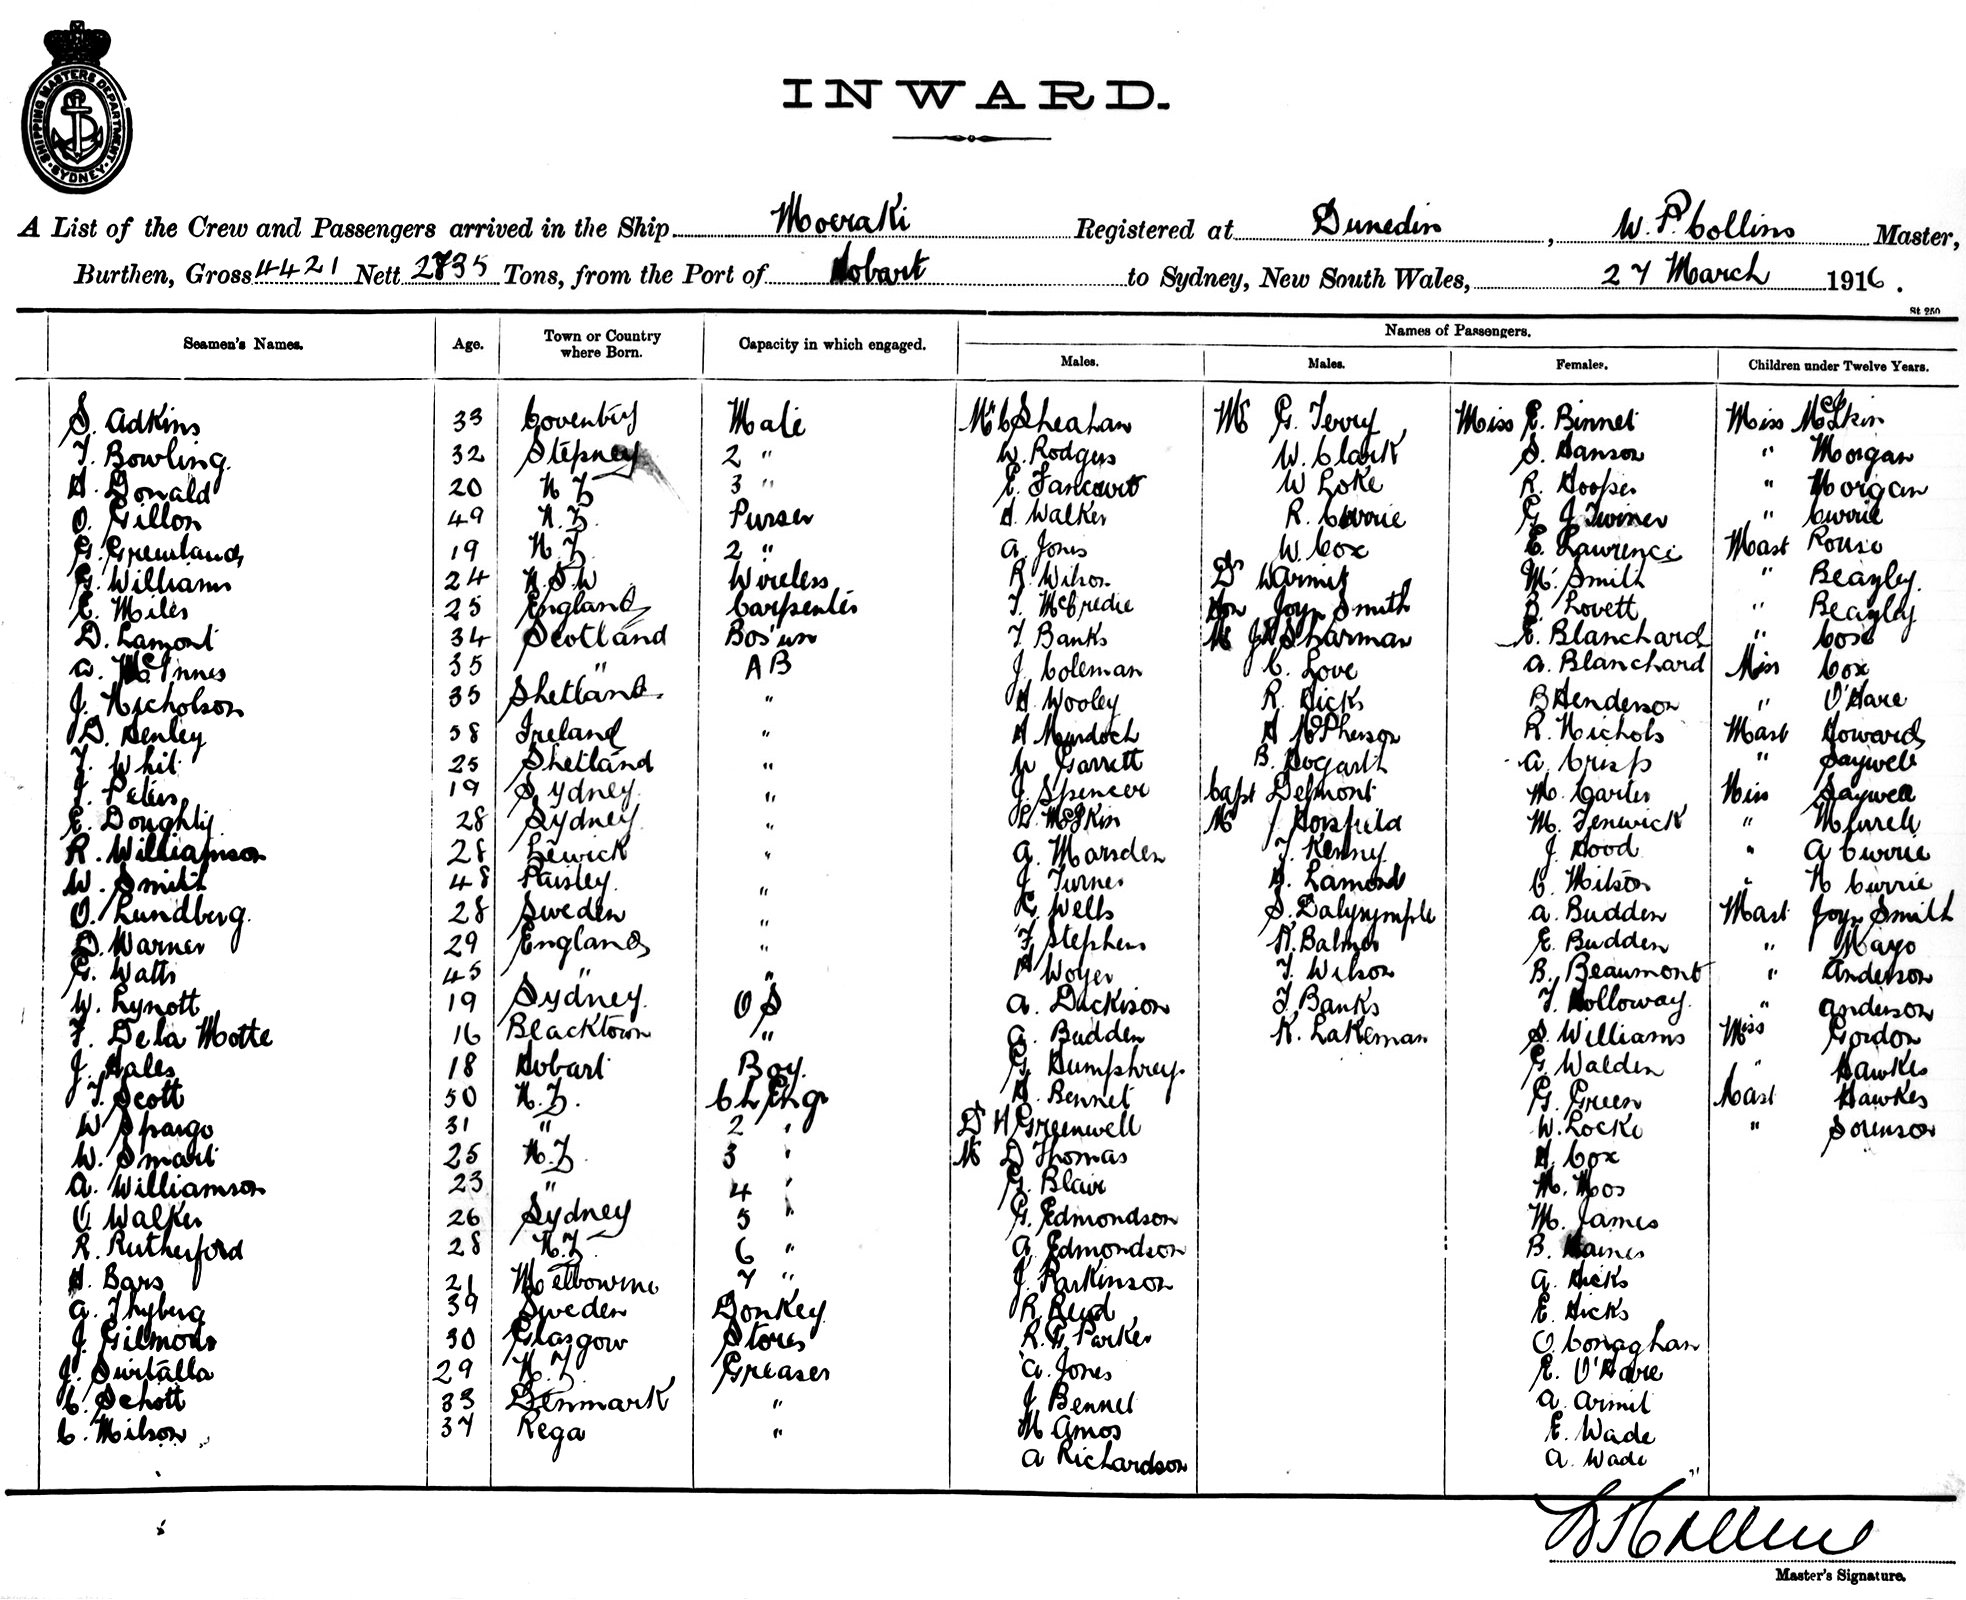 SHIPPING MASTERS DEPARTMENT
SYDNEY
INWARD.
A List of the Crew and Passengers arrived in the Ship Moeraki Registered at Dunedin, W. P. Collins Master,
Burthen, Gross 4421 Nett 2735 Tons, from the Port of Hobart to Sydney, New South Wales, 27 March 1916.
St 250
Seamen's Names. Age. Town or Country where Born. Capacity in which engaged. Names of Passengers.
Males. Males. Females. Children under Twelve Years.
S. Adkins 33 Coventry Mate Mr C Sheahan Mr G. Terry Miss E. Binnet Miss McSkin
T. Bowling 32 Stepney 2 " W. Rodgers W. Clark S. Hanson " Morgan
H. Donald 20 N Z 3 " E. Fancourt W Loke R. Hooper " Morgan
O. Gillon 49 N. Z. Purser H. Walker R. Currie G J Twiner " Currie
G. Greenland 19 N. Z. 2 " A. Jones W. Cox E. Lawrence Mast Rouse
G. Williams 24 N.S.W. Wireless R. Wilson Dr Warmit M. Smith " Beagley
E. Miles 25 England Carpenter T. McCredie Hon Joyn Smith B. Lovett " Beagley
D. Lamont 34 Scotland Bos'un T Banks Mr Sharman E. Blanchard " Cox
A. McInnes 35 " AB J. Coleman C. Love A. Blanchard Miss Cox
J. Nicholson 35 Shetland " H Wooley R. Hicks B Henderson " O'Hare
D. Henley 58 Ireland " H Murdoch H McPherson R. Nichols Mast Howard
T. Whit 25 Shetland " W Garrett B. Hogarth A Crisp " Saywell
J. Peters 19 Sydney " J. Spencer Capt Delmont M. Carter Miss Saywell
E. Doughty 28 Sydney " L. McSkin Mr J Horsfield M. Fenwick " Murell
R. Williamson 28 Lewick " G. Marsden T. Kenny J. Hood " A Currie
W. Smith 48 Paisley " J Turner H. Lamond C. Milston " N Currie
O. Lundberg 28 Sweden " C. Wells S. Dalyrymple A. Budden Mast Joyn Smith
D. Warner 29 England " F Stephens R. Balmer E. Budden " Mayo
G. Watts 45 " " H Woyer T. Wilson B. Beaumont " Anderson
W. Lynott 19 Sydney O S A. Duckison T. Banks T. Holloway " Anderson
F. De la Motte 16 Blacktown " G. Budden K. Lakeman S. Williams Miss Gordon
J. Hales 18 Hobart Boy G. Humphreys G. Walden " Hawkes
T. Scott 50 N. Z. Ch Engr H. Bennet G. Green Mast Hawkes
W Spargo 31 " 2 " Dr H Greenwell W. Locke " Sorenson
W. Smart 25 N. Z. 3 " Mr D Thomas H. Cox
A. Williamson 23 " 4 " G. Blair M. Mos
O. Walker 26 Sydney 5 " G. Edmondson M. James
R. Rutherford 28 N. Z. 6 " A. Edmondson B. Haines
H. Bars 21 Melbourne 7 " J. Parkinson A. Hicks
A. Thyberg 39 Sweden Donkey R. Reid E. Hicks
J. Gilmour 30 Glasgow Stores R. G. Parker O. Conaghan
J. Switalla 29 N. Z Greaser A. Jones E. O'Hare
C. Schott 33 Denmark " J Bennet A. Armit
C. Milson 37 Rega " M Amos E. Wade
A Richardson A. Wade
Master's Signature.